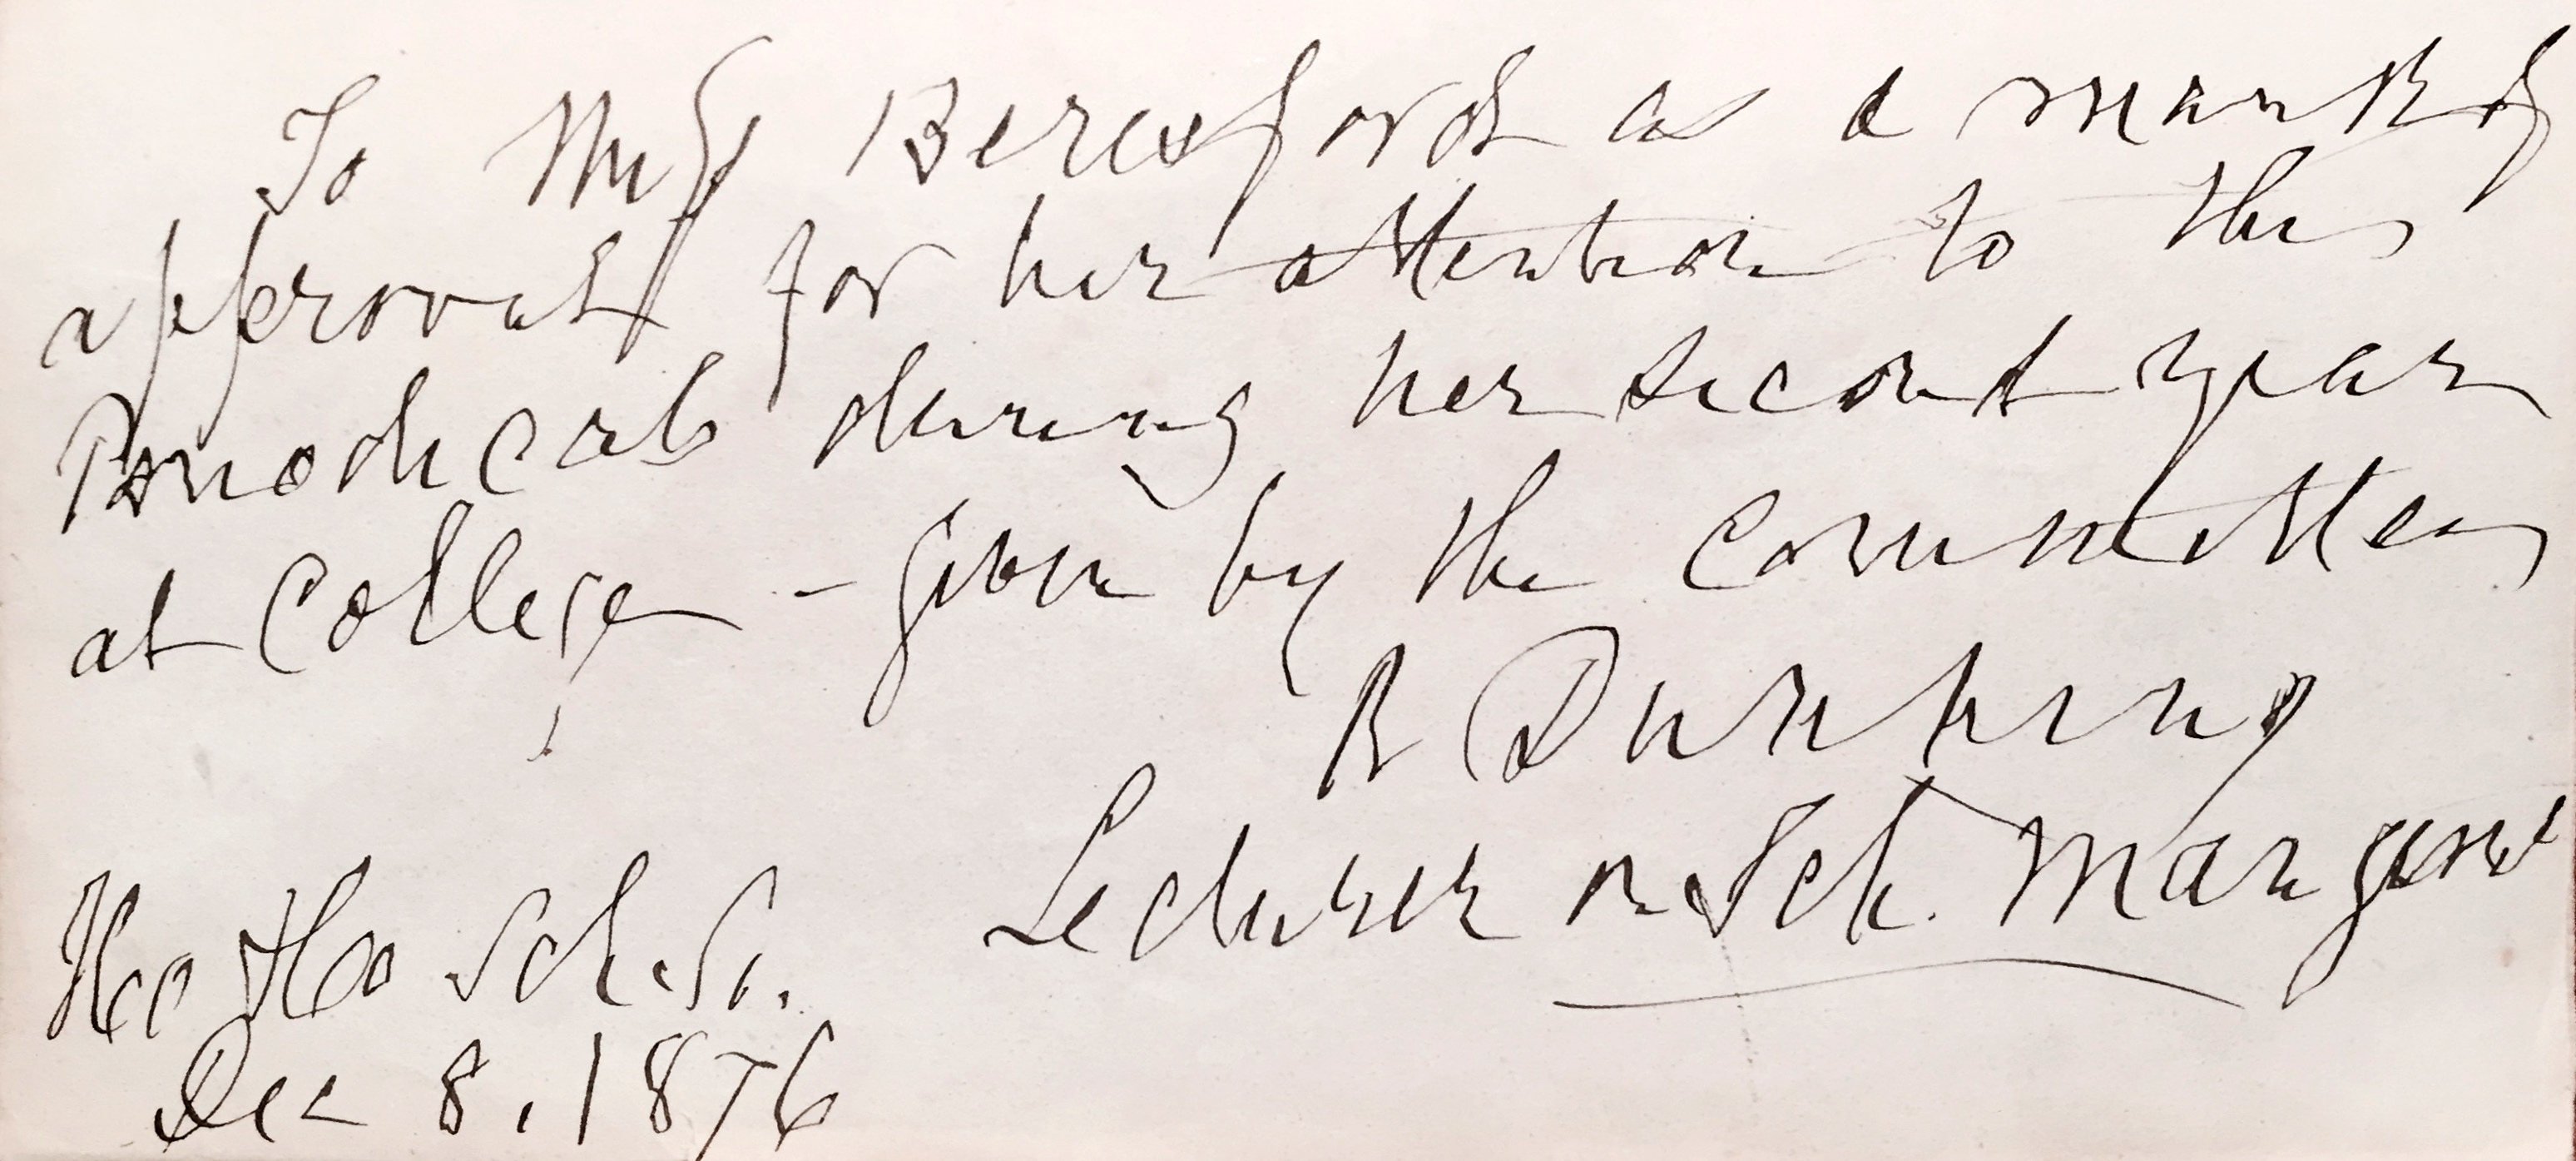 To Miss Beresford as a mark of
approval for her attention to the
Periodicals during her second year
at College – given by the Committee
R Dunning
Lecturer on Sch. Mangemt
Ho & Co Sch. So.
Dec 8. 1876